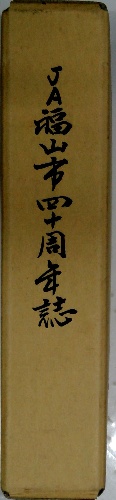 JA福山市四十周年誌